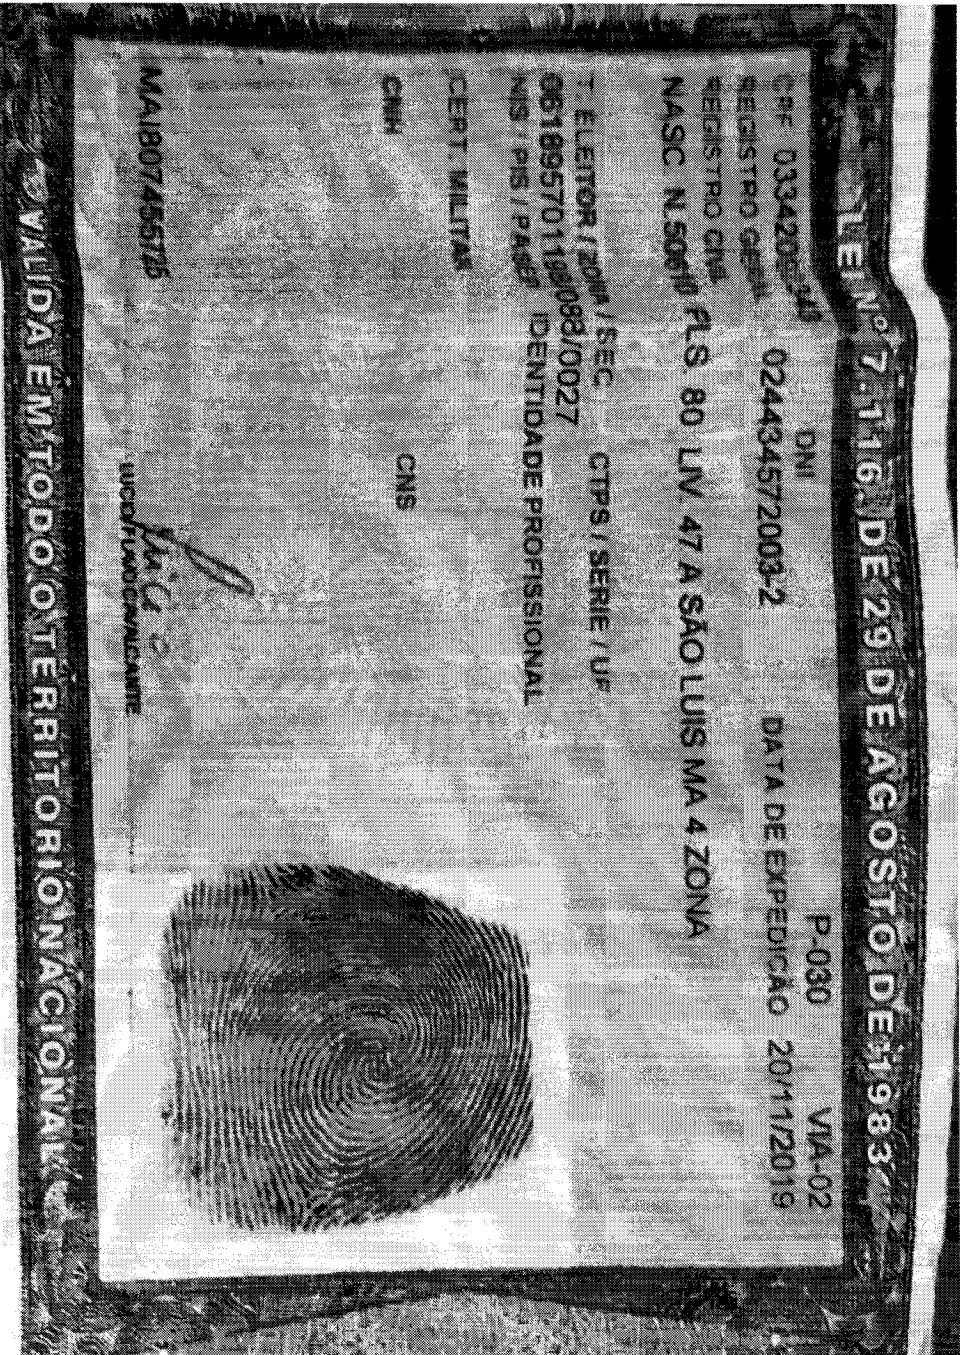 LEI Nº 7.116, DE 29 DE AGOSTO DE 1983
CPF DNI P-030 VIA-02
REGISTRO GERAL 024434572003-2 DATA DE EXPEDIÇÃO 20/11/2019
REGISTRO CIVIL
NASC. N.50610 FLS. 80 LIV. 47 A SÃO LUIS MA 4 ZONA
T. ELEITOR / ZONA / SEC CTPS / SERIE / UF
/0027
NIS / PIS / PASEP IDENTIDADE PROFISSIONAL
CERT. MILITAR
CNH CNS
LUCIO FLAVIO CAVALCANTE
VALIDA EM TODO O TERRITORIO NACIONAL